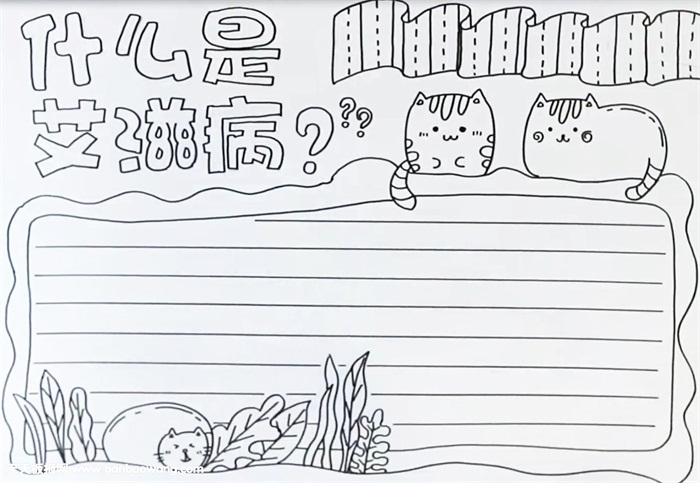 什么是
艾滋病?
??
www.banbaowang.com